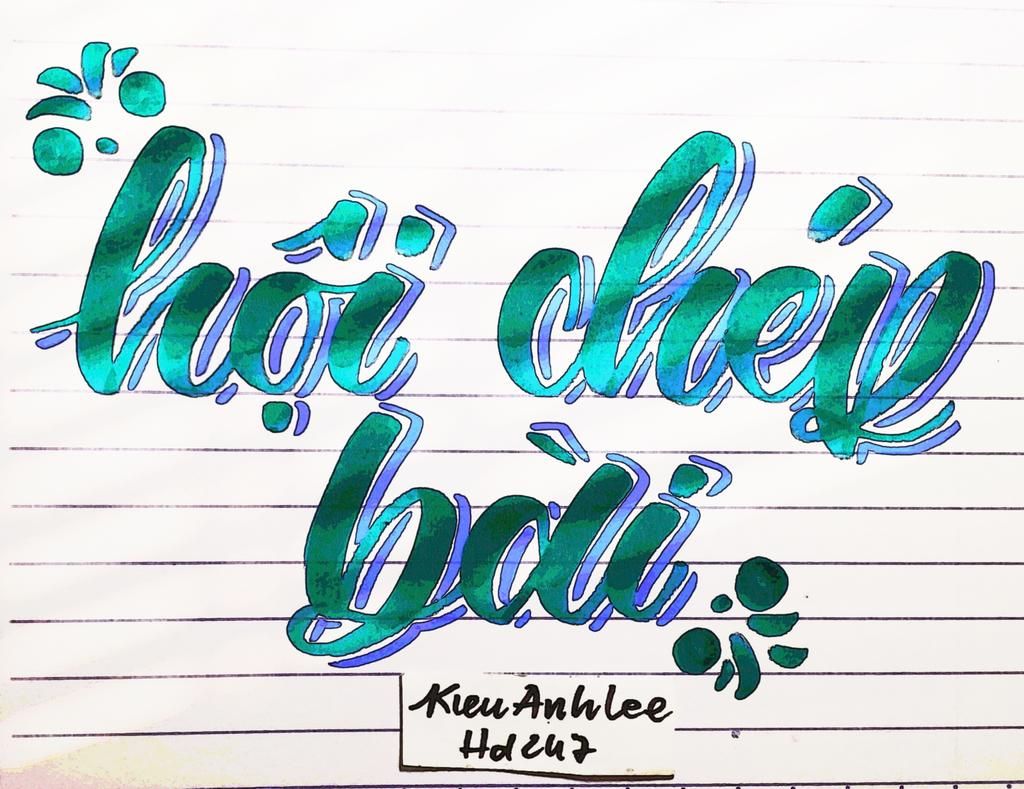 hội chép
bài
KieuAnhlee
Hd247